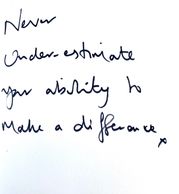 Never
Under-estimate
your ability to
Make a difference x